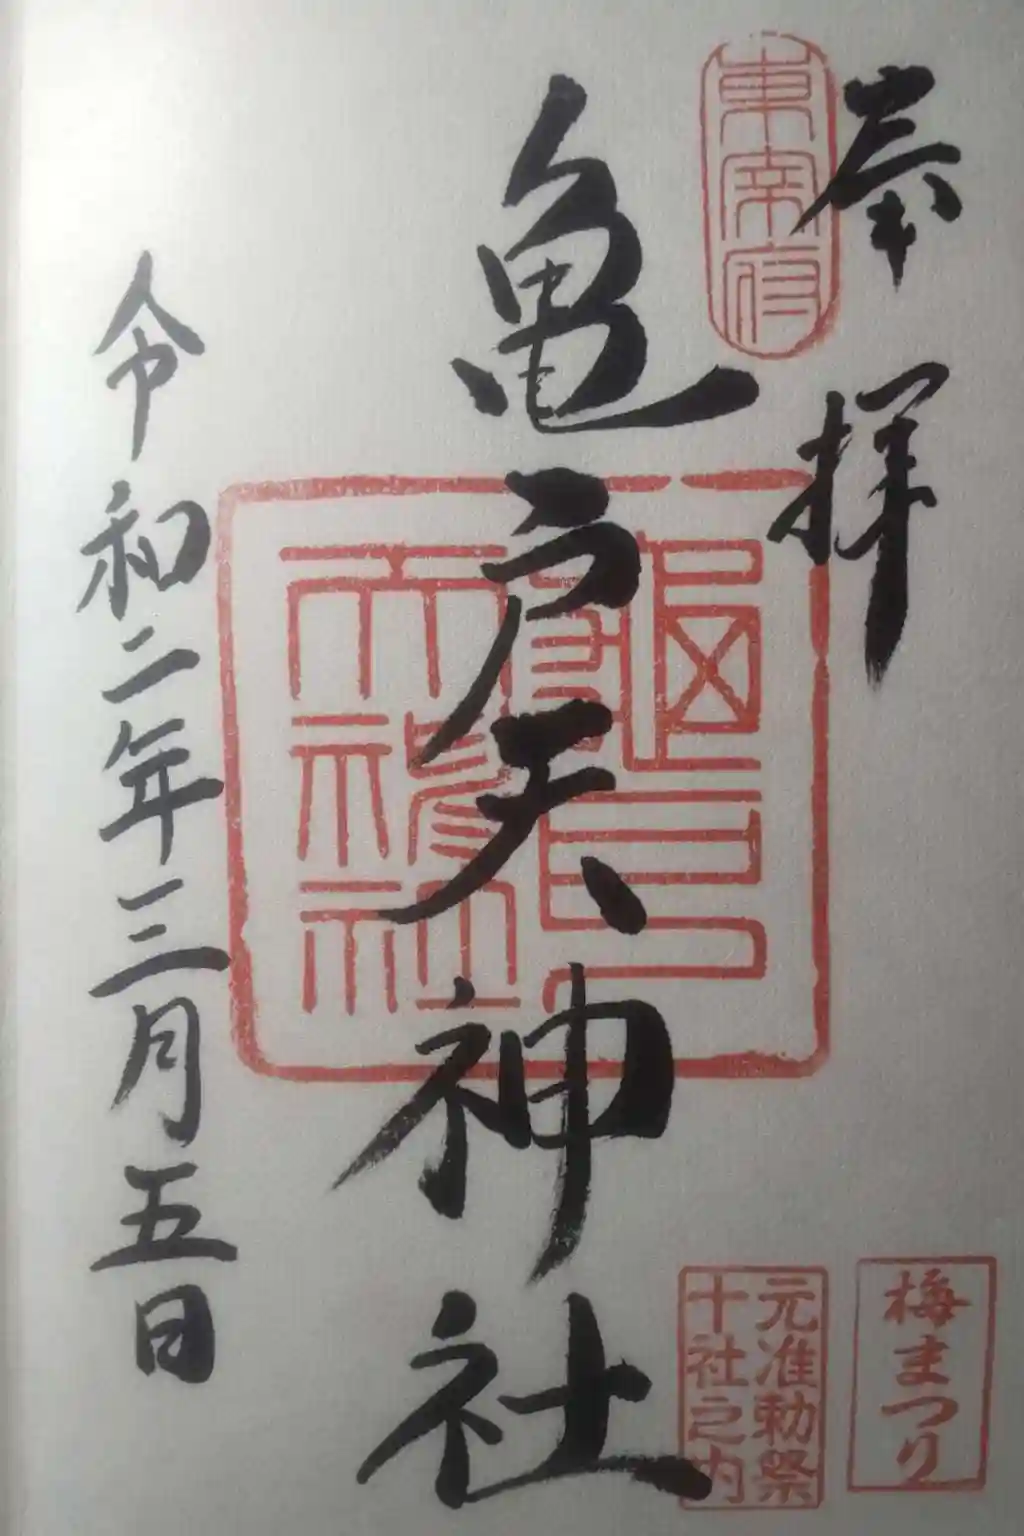 奉拝
東宰府
亀戸天神社
龜戸天神社
令和二年三月五日
元准勅祭
十社之内
梅まつり